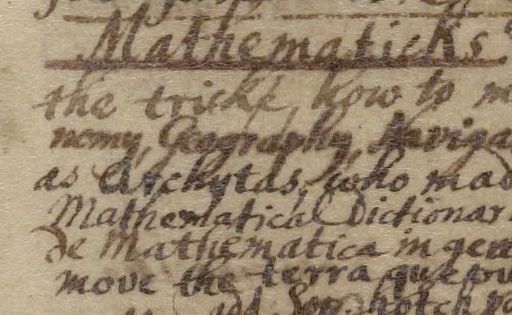 Mathematicks
the tricks, how to m
nomy, Geography, Naviga
as Archytas, who mad
Mathematical Dictionar
de Mathematica in gen
move the terra queou
hotch